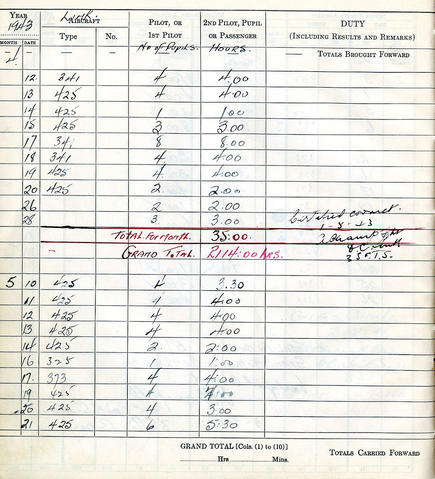 YEAR AIRCRAFT PILOT, OR 2ND PILOT, PUPIL DUTY
1943 1ST PILOT OR PASSENGER (INCLUDING RESULTS AND REMARKS)
MONTH DATE Type No. No of Pupils. HOURS. TOTALS BROUGHT FORWARD
4
12 341 4 4.00
13 425 4 4.00
14 425 1 1.00
15 425 3 3.00
17 341 8 8.00
18 341 4 4.00
19 425 4 4.00
20 425 2 2.00
26 2 2.00
28 3 3.00 Certified correct.
TOTAL FOR MONTH. 35.00. 1-5-43
GRAND TOTAL. 2114:00 HRS.
5 10 425 4 3.30
11 425 4:00
12 425 4 4:00
13 425 4 4:00
14 425 2 2:00
16 325 1 1:00
17. 373 4 4:00
19 425
20 425 4 3:00
21 425 6 5:30
GRAND TOTAL [Cols. (1) to (10)]
Hrs Mins. TOTALS CARRIED FORWARD